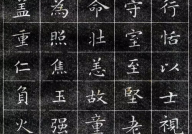 行恬以士視
守室至堅老
命壮恙故童
為照焦玉强
盖重仁負火